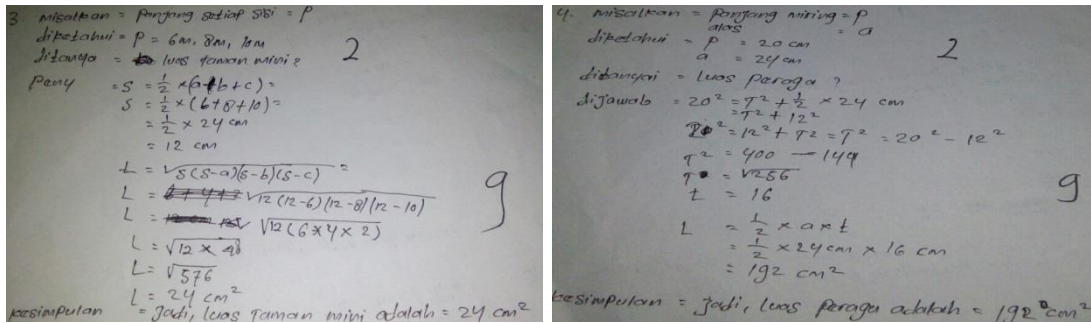 3. misalkan = panjang setiap sisi = P
diketahui = P = 6m, 8m, 10m
ditanya = luas taman mini?
2
Peny = S = 1/2 × (a+b+c) =
S = 1/2 × (6+8+10) =
= 1/2 × 24 cm
= 12 cm
L = √s(s-a)(s-b)(s-c) =
L = √12(12-6)(12-8)(12-10)
L = √12(6×4×2)
9
L = √12 × 48
L = √576
L = 24 cm²
kesimpulan = jadi, luas taman mini adalah = 24 cm²
4. misalkan = panjang miring = P
alas = a
diketahui = P = 20 cm
a = 24 cm
2
ditanyai = luas peraga?
dijawab = 20² = T² + 1/2 × 24 cm
= T² + 12²
20² = 12² + T² = T² = 20² - 12²
T² = 400 - 144
T = √256
t = 16
9
L = 1/2 × a × t
= 1/2 × 24 cm × 16 cm
= 192 cm²
kesimpulan = jadi, luas peraga adalah = 192 cm²